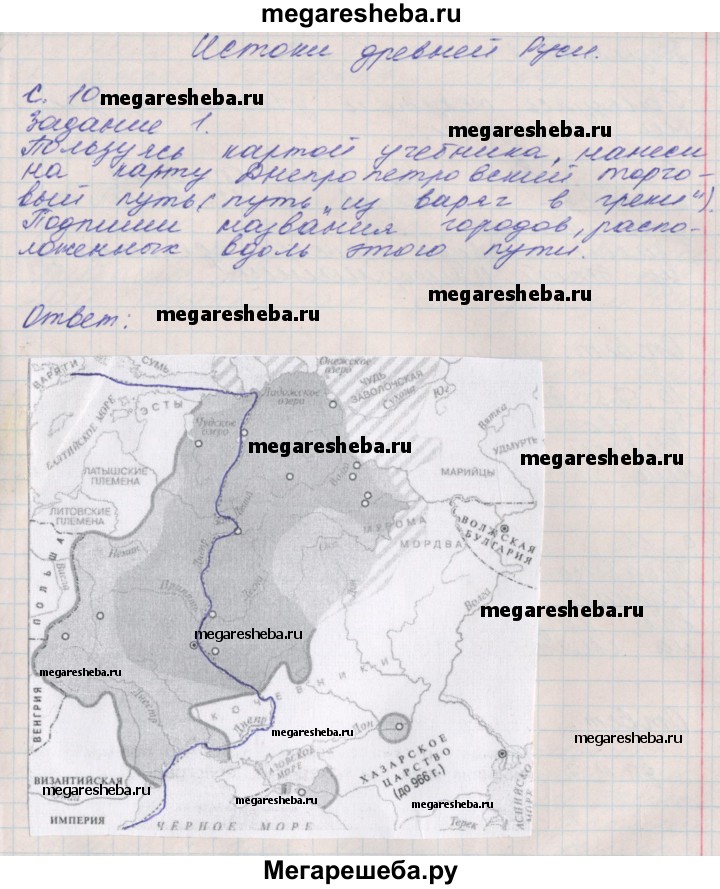 megaresheba.ru
Истоки древней Руси.
с. 10 megaresheba.ru
Задание 1. megaresheba.ru
Пользуясь картой учебника, нанеси
на карту Днепропетровский торго-
вый путь (путь "из варяг в греки").
Подпиши названия городов, распо-
ложенных вдоль этого пути.
megaresheba.ru
Ответ: megaresheba.ru
ВАРЯГИ
СУМЬ
Онежское озеро
Ладожское озеро
ЧУДЬ ЗАВОЛОЧСКАЯ
Сухона
Юг
БАЛТИЙСКОЕ МОРЕ
ЭСТЫ
Чудское озеро
Вятка
megaresheba.ru
УДМУРТЫ
megaresheba.ru
ЛАТЫШСКИЕ ПЛЕМЕНА
МАРИЙЦЫ
ЛИТОВСКИЕ ПЛЕМЕНА
МУРОМА
МОРДВА
ВОЛЖСКАЯ БУЛГАРИЯ
Неман
ПОЛЬША
Висла
Припять
Десна
Дон
Волга
megaresheba.ru
megaresheba.ru
megaresheba.ru
Днестр
КОЧЕВНИКИ
ВЕНГРИЯ
Днепр
Дон
megaresheba.ru
megaresheba.ru
АЗОВСКОЕ МОРЕ
ХАЗАРСКОЕ ЦАРСТВО (до 966 г.)
ВИЗАНТИЙСКАЯ
megaresheba.ru
megaresheba.ru
megaresheba.ru
ИМПЕРИЯ
ЧЕРНОЕ МОРЕ
Терек
КАСПИЙСКОЕ
Мегарешеба.ру